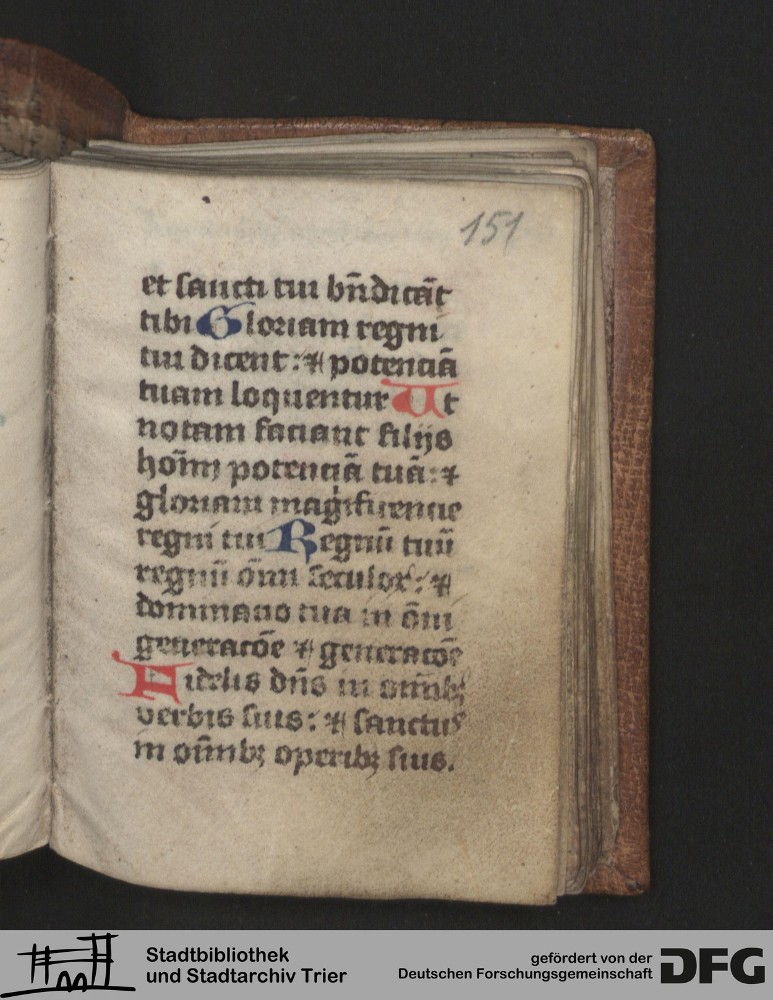 151
et sancti tui bn̄dicāt
tibi Gloriam regni
tui dicent: ⁊ potenciā
tuam loquentur Ut
notam faciant filijs
hoīm potenciā tuā: ⁊
gloriam magīficencie
regni tui Regnū tuū
regnū om̄i seculoꝝ: ⁊
dominatio tua in om̄i
generacōe ⁊ generacōe
Fidelis dn̄s in om̄ibꝫ
verbis suis: ⁊ sanctus
in om̄ibꝫ operibꝫ suis.
Stadtbibliothek
und Stadtarchiv Trier
gefördert von der
Deutschen Forschungsgemeinschaft
DFG